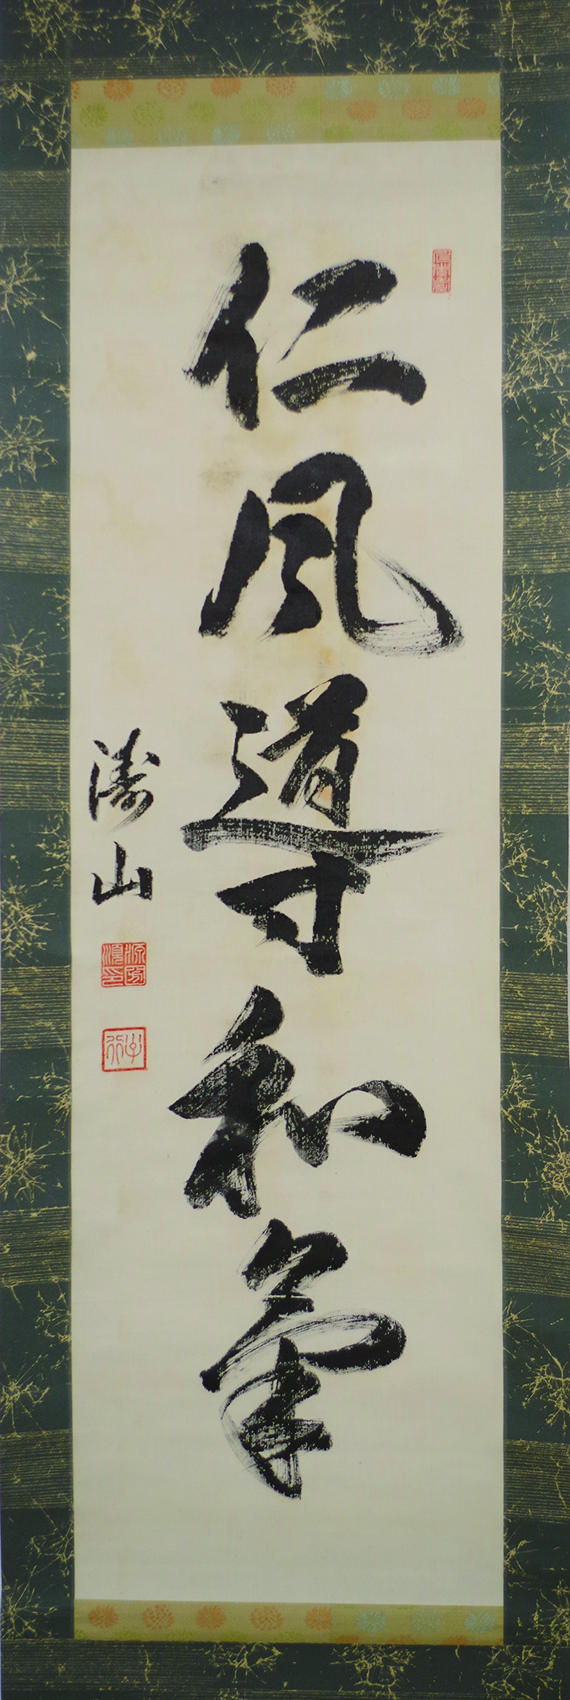 仁風導和氣
濤山